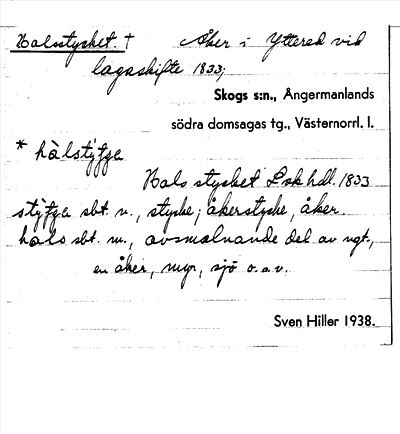 Halsstycket. † Åker i Yttered vid
lagaskifte 1833;
Skogs s:n., Ångermanlands
södra domsagas tg., Västernorrl. l.
* hàlstytja
Hals stycket Lsk hdl. 1833
stytja sbt. n., stycke; åkerstycke, åker.
hals sbt. m., avsmalnande del av ngt.,
en åker, myr, sjö o.a.v.
Sven Hiller 1938.